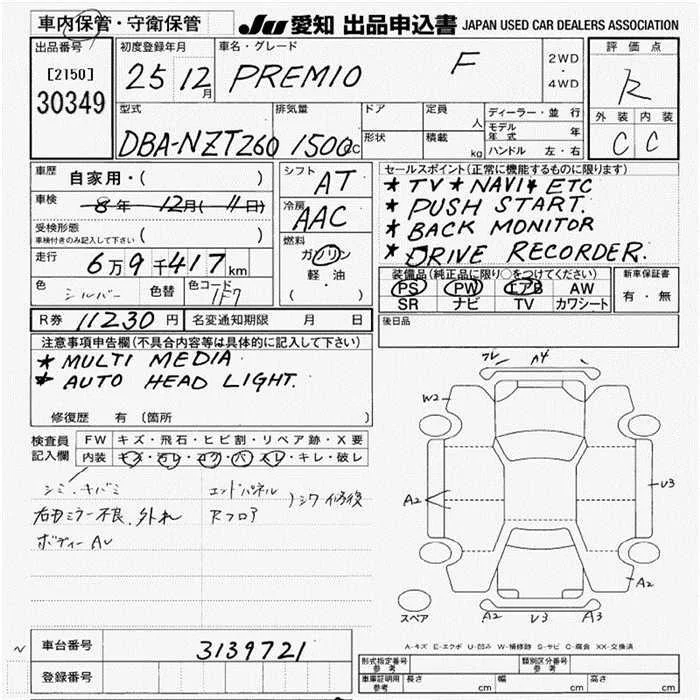 車内保管・守衛保管
JU 愛知 出品申込書 JAPAN USED CAR DEALERS ASSOCIATION
出品番号
[2150]
30349
初度登録年月
25 12月
車名・グレード
PREMIO F
2WD
・
4WD
評価点
R
外装 内装
C C
型式
DBA-NZT260
排気量
1500cc
ドア
形状
定員
人
積載
kg
ディーラー・並行
モデル年式 年
ハンドル 左・右
車歴
自家用・( )
車検
8年 12月( 11日)
受検形態
車検付きのみ記入して下さい ( )
走行
6万9千417km
色
シルバー
色替
色コード
1F7
シフト
AT
冷房
AAC
燃料
ガソリン
軽・油
( )
セールスポイント(正常に機能するものに限ります)
★ TV ★ NAVI ★ ETC
★ PUSH START.
★ BACK MONITOR
★ DRIVE RECORDER.
装備品(純正品に限り○をつけてください)
PS PW エアB AW
SR ナビ TV カワシート
新車保証書
有・無
R券 11230円
名変通知期限 月 日
後日品
注意事項申告欄(不具合内容等は具体的に記入して下さい)
★ MULTI MEDIA
★ AUTO HEAD LIGHT.
修復歴 有 〔箇所 〕
検査員記入欄
FW キズ・飛石・ヒビ割・リペア跡・X要
内装 キズ・汚レ・コゲ・穴・スレ・キレ・破レ
シミ・キバミ
右田ミラー不良、外れ
ボディーAU
エンドパネル
Rフロア
シワ 修復
フレ A4
W2
A2
U3
A2
A2 U3 A3
スペア
A-キズ E-エクボ U-凹み W-補修跡 S-サビ C-腐食 XX-交換済
車台番号
3139721
登録番号
形式指定番号
参考
類別区分番号
参考
車庫証明用
参考
長さ cm 幅 cm 高さ cm